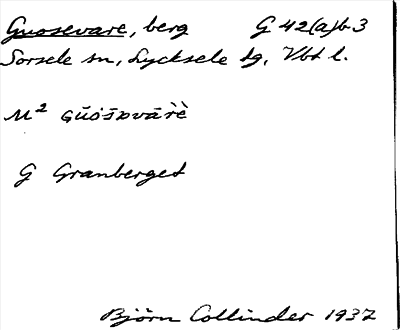 Guosevare, berg G 42(a)b3
Sorsele sn, Lycksele tg, Vbt l.
M²
G Granberget
Björn Collinder 1937